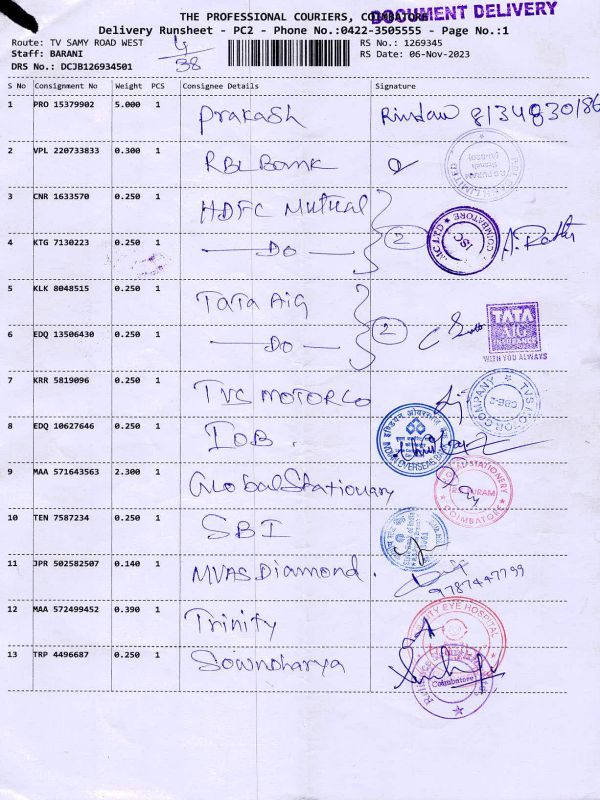 THE PROFESSIONAL COURIERS, COIMBATORE
DOCUMENT DELIVERY
Delivery Runsheet - PC2 - Phone No.:0422-3505555 - Page No.:1
Route: TV SAMY ROAD WEST
4/38
RS No.: 1269345
Staff: BARANI
RS Date: 06-Nov-2023
DRS No.: DCJB126934501
S No Consignment No Weight PCS Consignee Details Signature
1 PRO 15379902 5.000 1 Prakash
2 VPL 220733833 0.300 1 RBL Bank
3 CNR 1633570 0.250 1 HDFC Mutual
4 KTG 7130223 0.250 1 — Do — 2
5 KLK 8048515 0.250 1 TATA AIG
TATA
AIG
INSURANCE
WITH YOU ALWAYS
6 EDQ 13506430 0.250 1 — Do — 2
7 KRR 5819096 0.250 1 TVS MOTOR CO
TVS MOTOR COMPANY
8 EDQ 10627646 0.250 1 IOB.
INDIAN OVERSEAS BANK
9 MAA 571643563 2.300 1 Global Stationary
STATIONERY
COIMBATORE
10 TEN 7587234 0.250 1 SBI
11 JPR 502582507 0.140 1 MVAS Diamond. 9787447799
12 MAA 572499452 0.390 1 Trinity
TRINITY EYE HOSPITAL
13 TRP 4496687 0.250 1 Sowndharya
Coimbatore